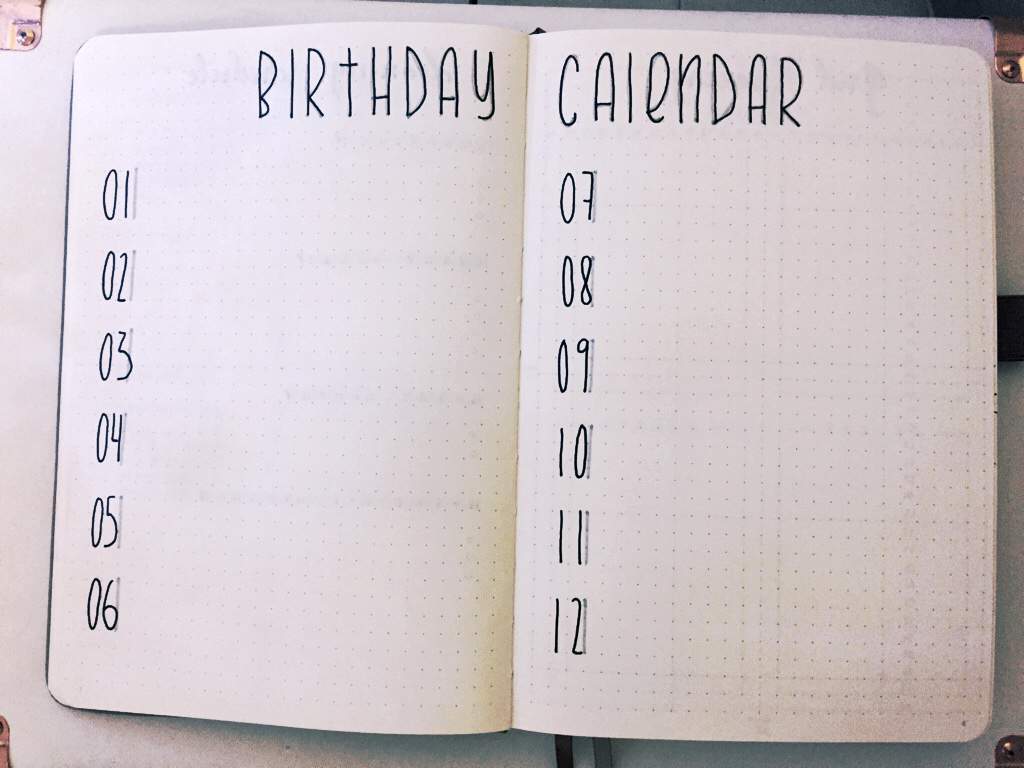 BIRtHDAY CAleNDAR
01
02
03
04
05
06
07
08
09
10
11
12